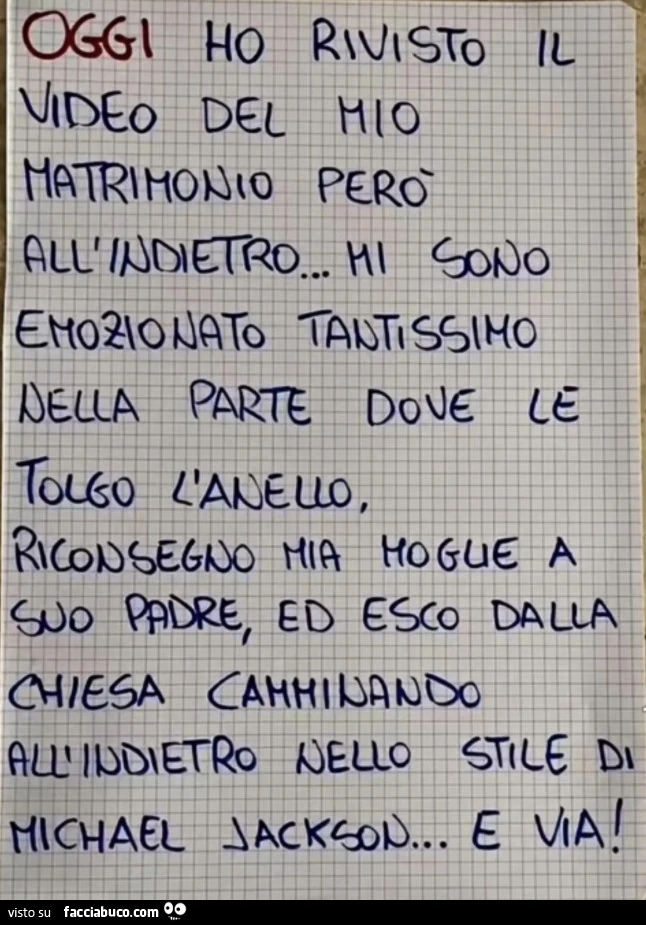 OGGI HO RIVISTO IL
VIDEO DEL MIO
MATRIMONIO PERÒ
ALL'INDIETRO... MI SONO
EMOZIONATO TANTISSIMO
NELLA PARTE DOVE LE
TOLGO L'ANELLO,
RICONSEGNO MIA MOGLIE A
SUO PADRE, ED ESCO DALLA
CHIESA CAMMINANDO
ALL'INDIETRO NELLO STILE DI
MICHAEL JACKSON... E VIA!
visto su facciabuco.com